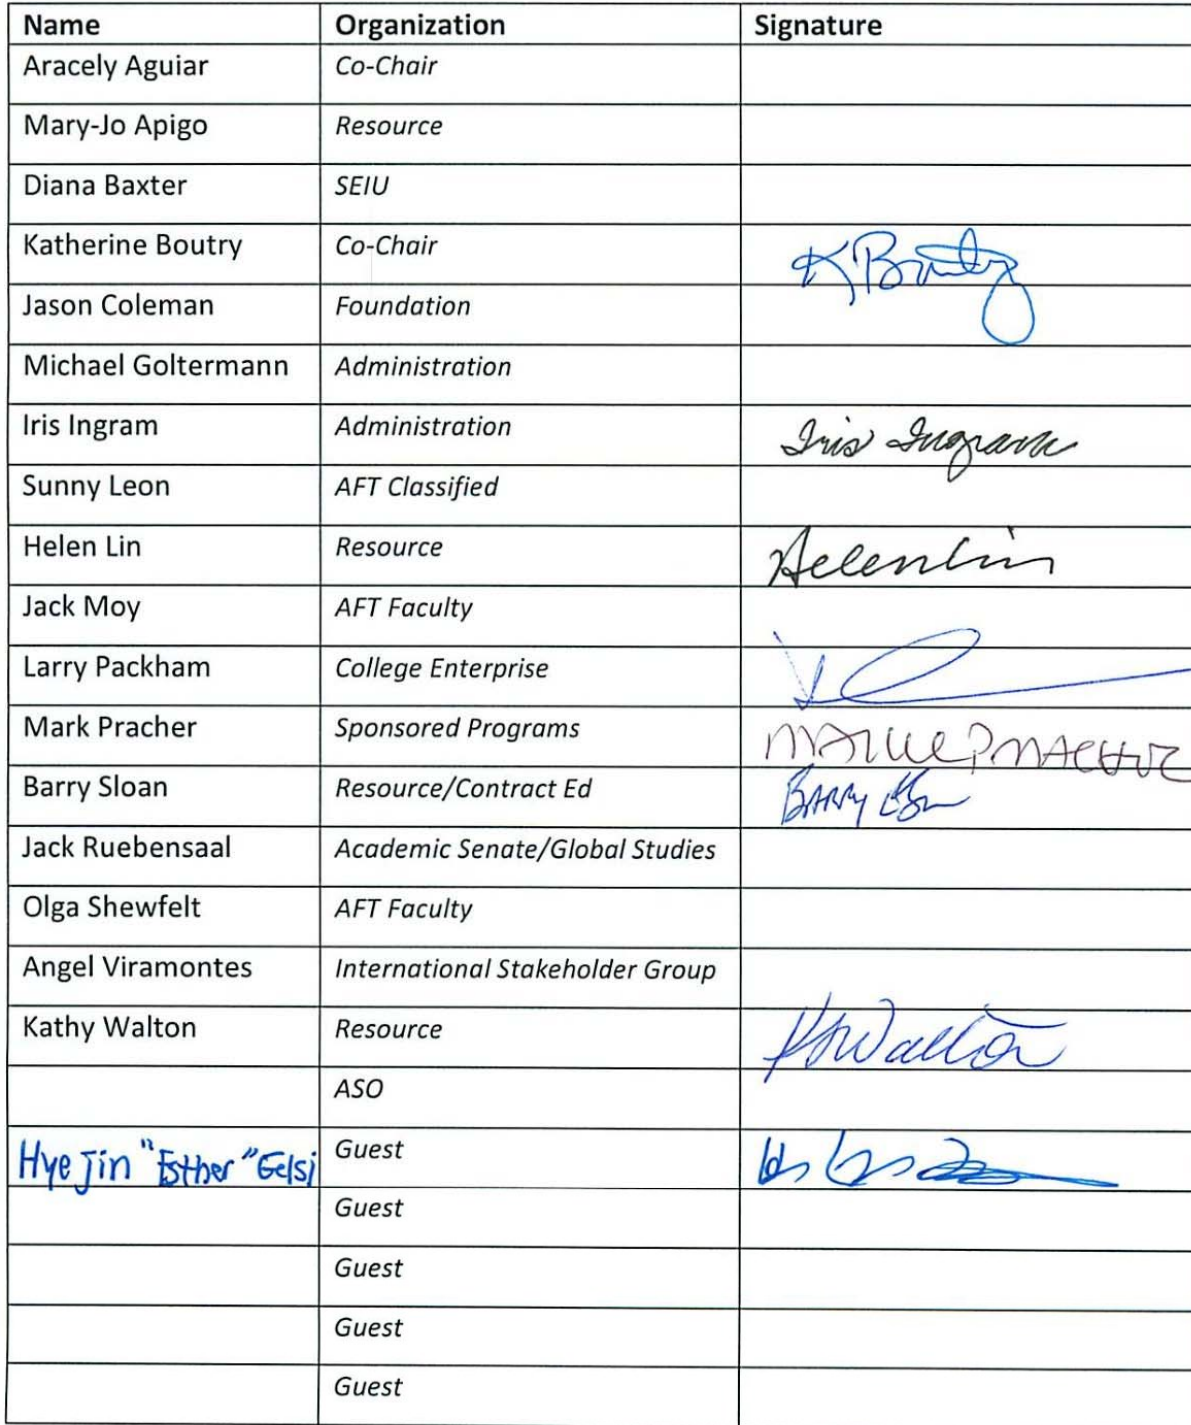 Name Organization Signature
Aracely Aguiar Co-Chair
Mary-Jo Apigo Resource
Diana Baxter SEIU
Katherine Boutry Co-Chair K Boutry
Jason Coleman Foundation
Michael Goltermann Administration
Iris Ingram Administration Iris Ingram
Sunny Leon AFT Classified
Helen Lin Resource Helen Lin
Jack Moy AFT Faculty
Larry Packham College Enterprise
Mark Pracher Sponsored Programs MARK PRACHER
Barry Sloan Resource/Contract Ed BARRY
Jack Ruebensaal Academic Senate/Global Studies
Olga Shewfelt AFT Faculty
Angel Viramontes International Stakeholder Group
Kathy Walton Resource Walton
ASO
Hye Jin "Esther" Gelsi Guest
Guest
Guest
Guest
Guest